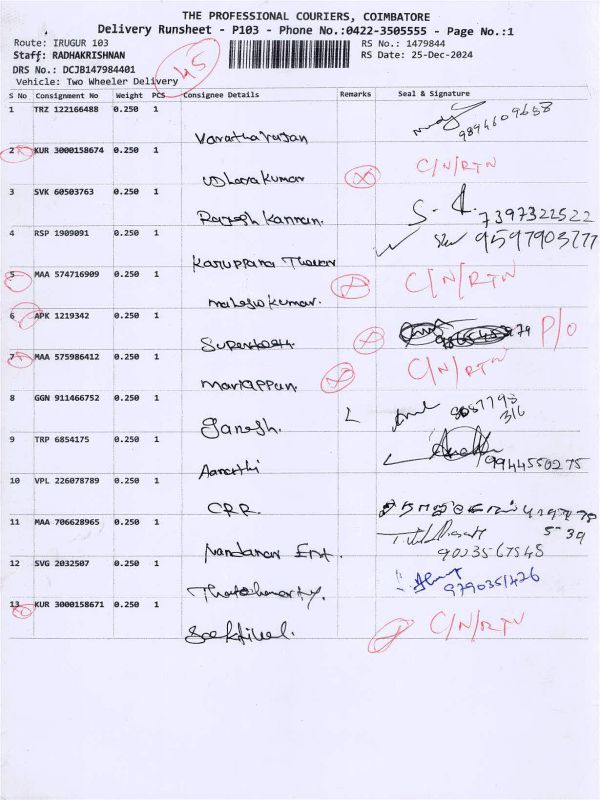 THE PROFESSIONAL COURIERS, COIMBATORE
Delivery Runsheet - P103 - Phone No.:0422-3505555 - Page No.:1
Route: IRUGUR 103
RS No.: 1479844
Staff: RADHAKRISHNAN
RS Date: 25-Dec-2024
DRS No.: DCJB147984401
Vehicle: Two Wheeler Delivery
45
S No Consignment No Weight PCS Consignee Details Remarks Seal & Signature
1 TRZ 122166488 0.250 1
Varatharajan 9894609658
2 KUR 3000158674 0.250 1
Udhaya Kumar C/N/RTN
3 SVK 60503763 0.250 1
Rajesh Kannan. 7397322522
4 RSP 1909091 0.250 1
Karuppana Thevar 9597903777
5 MAA 574716909 0.250 1
Mahesh Kumar. C/N/RTN
6 APK 1219342 0.250 1
P/O
7 MAA 575986412 0.250 1
Mariappan. C/N/RTN
8 GGN 911466752 0.250 1
Ganesh.
9 TRP 6854175 0.250 1
Aarathi 9944550275
10 VPL 226078789 0.250 1
C.R.R.
11 MAA 706628965 0.250 1
Nandanan Ent.
12 SVG 2032507 0.250 1
9790351426
13 KUR 3000158671 0.250 1
Sakthivel. C/N/RTN